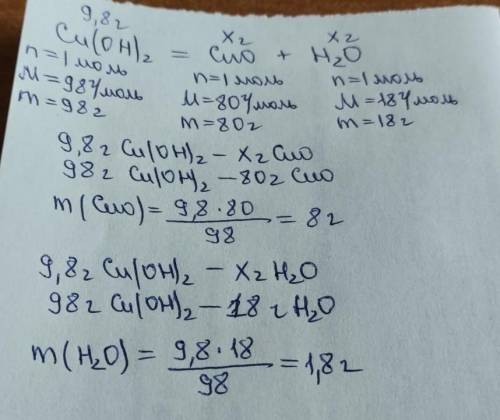 9,8г xг xг
Cu(OH)₂ = CuO + H₂O
n=1моль n=1моль n=1моль
M=98г/моль M=80г/моль M=18г/моль
m=98г m=80г m=18г
9,8г Cu(OH)₂ – xг CuO
98г Cu(OH)₂ – 80г CuO
m(CuO) = 9,8·80/98 = 8г
9,8г Cu(OH)₂ – xг H₂O
98г Cu(OH)₂ – 18г H₂O
m(H₂O) = 9,8·18/98 = 1,8г